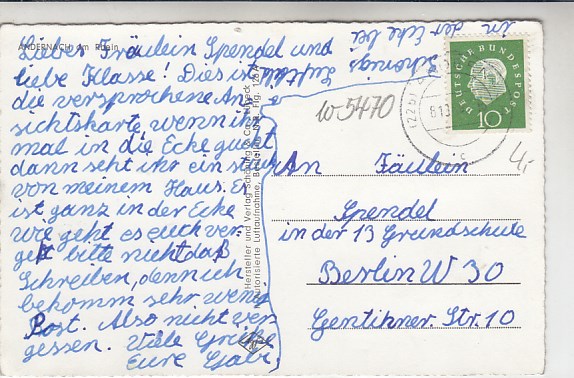 ANDERNACH am Rhein
Lieber Fräulein Spendel und
liebe Klasse! Dies ist
die versprochene An
sichtskarte wenn ihr
mal in die Ecke guckt
dann seht ihr ein stück
von meinem Haus. Es
ist ganz in der Ecke
wie geht es euch ver
geßt bitte nicht daß
Schreiben, denn ich
bekomm sehr wenig
Post. Also nicht ver
gessen. Viele Grüße
Eure Gabi,
in der Ecke bei
Schöning's Luftbild
Hersteller und Verlag Schöning & Co., Lübeck
Autorisierte Luftaufnahme,
DEUTSCHE BUNDESPOST
10
10-5470
4,-
An Fräulein
Spendel
in der 13 Grundschule
Berlin W 30
Gentihner. Str. 10